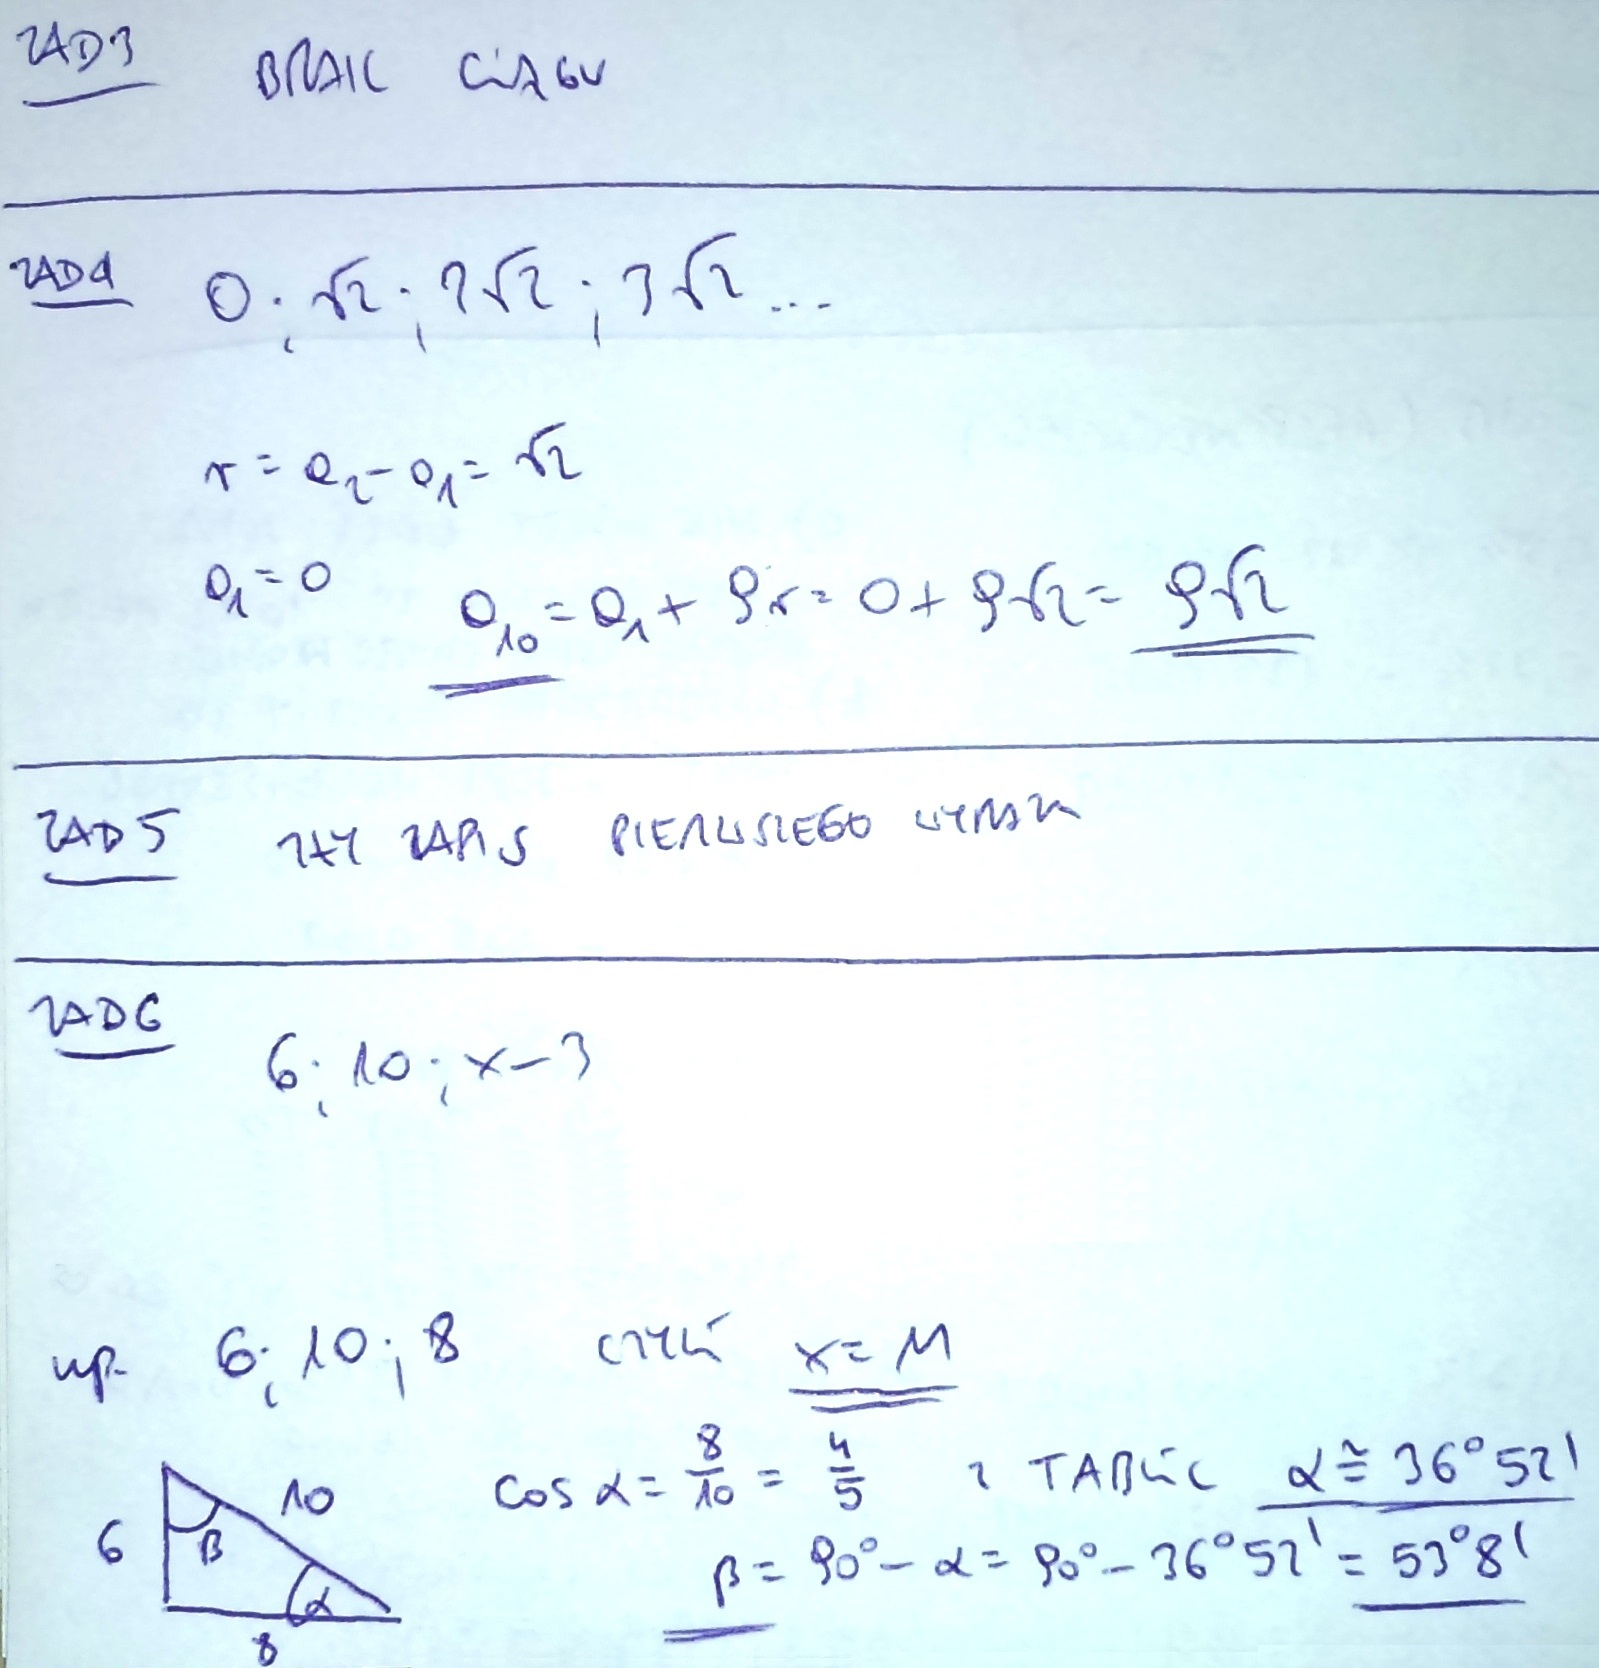 ZAD3 BRAK CIĄGU
ZAD4 0; √2; 2√2; 3√2...
r = a₂ - a₁ = √2
a₁ = 0 a₁₀ = a₁ + 9r = 0 + 9√2 = 9√2
ZAD5 ZŁY ZAPIS PIERWSZEGO WYRAZU
ZAD6
6; 10; x-3
np. 6; 10; 8 CZYLI x = 11
cos α = 8/10 = 4/5 Z TABLIC α ≅ 36°52'
β = 90° - α = 90° - 36°52' = 53°8'
6 10 β α 8